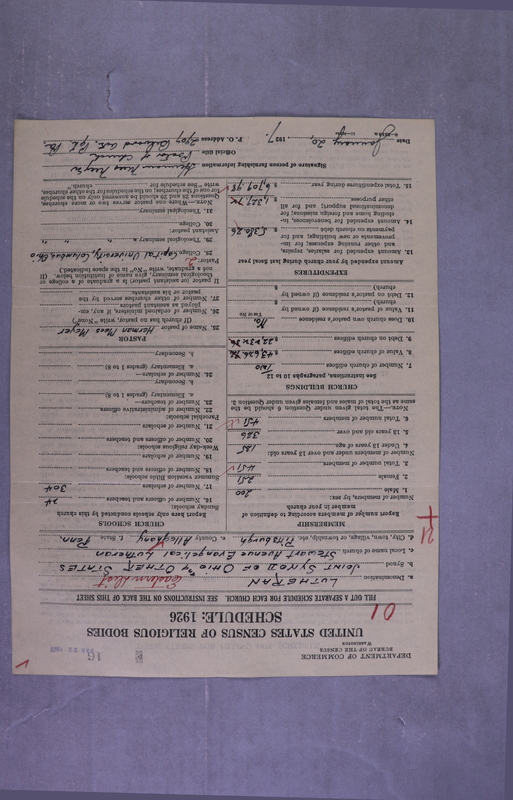 DEPARTMENT OF COMMERCE
BUREAU OF THE CENSUS
WASHINGTON
UNITED STATES CENSUS OF RELIGIOUS BODIES
SCHEDULE: 1926
FILL OUT A SEPARATE SCHEDULE FOR EACH CHURCH. SEE INSTRUCTIONS ON THE BACK OF THIS SHEET
01
Eastern Dist
a. Denomination LUTHERAN
b. Synod JOINT SYNOD OF OHIO & OTHER STATES
c. Local name of church Stewart Avenue Evangelical Lutheran
d. City, town, village, or township, etc. Pittsburgh e. County Allegheny f. State Penn.
21
MEMBERSHIP
Report here members according to definition of member in your church
Number of members, by sex:
1. Male 200
2. Female 251
3. Total number of members 451
Number of members under and over 13 years old:
4. Under 13 years of age 125
5. 13 years old and over 326
6. Total number of members 451
NOTE.—The total given under Question 6 should be the same as the total of males and females given under Question 3.
CHURCH BUILDINGS
See instructions, paragraphs 10 to 12
7. Number of church edifices Two
8. Value of church edifices
9. Debt on church edifices
10. Does church own pastor's residence No
Yes or No
11. Value of pastor's residence (if owned by church) $
12. Debt on pastor's residence (if owned by church) $
EXPENDITURES
Amount expended by your church during last fiscal year
13. Amount expended for salaries, repairs, and other running expenses; for improvements or new buildings; and for payments on church debt
14. Amount expended for benevolences, including home and foreign missions; for denominational support; and for all other purposes
15. Total expenditures during year
CHURCH SCHOOLS
Report here only schools conducted by this church
Sunday schools:
16. Number of officers and teachers 24
17. Number of scholars 304
Summer vacation Bible schools:
18. Number of officers and teachers
19. Number of scholars
Week-day religious schools:
20. Number of officers and teachers
21. Number of scholars
Parochial schools:
22. Number of administrative officers
23. Number of teachers—
a. Elementary (grades 1 to 8)
b. Secondary
24. Number of scholars—
a. Elementary (grades 1 to 8)
b. Secondary
PASTOR
25. Name of pastor Herman Maas Meyer
(If church has no pastor, write "None")
26. Number of ordained ministers, if any, employed as assistant pastors
27. Number of other churches served by the pastor or his assistants
If pastor (or assistant pastor) is a graduate of a college or theological seminary, give name of institution below. (If not a graduate, write "No" in the space indicated.)
Pastor:
28. College Capital University, Columbus, Ohio
29. Theological seminary " " "
Assistant pastor:
30. College
31. Theological seminary
NOTE.—Where one pastor serves two or more churches, Question 28 and 29 should be answered only on the schedule for one of the churches; on the schedule for the other churches, write "See schedule for church."
Signature of person furnishing information Herman Maas Meyer
Official title Pastor of Church
P. O. Address
Date January 20, 1927.